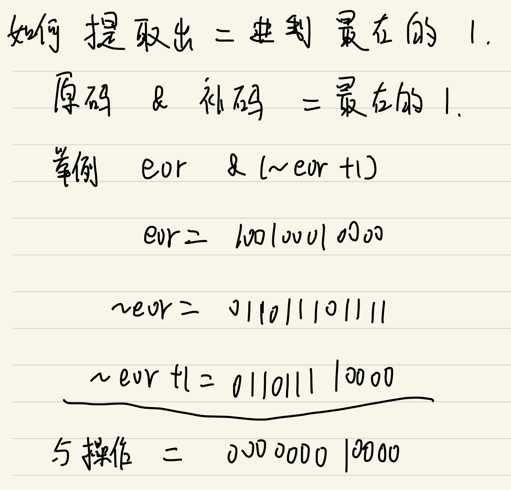 如何 提取出 二进制 最左的 1.
原码 & 补码 = 最左的 1.
举例 eor & (~eor +1)
eor = 100100010000
~eor = 011011101111
~eor +1 = 011011110000
与操作 = 000000010000